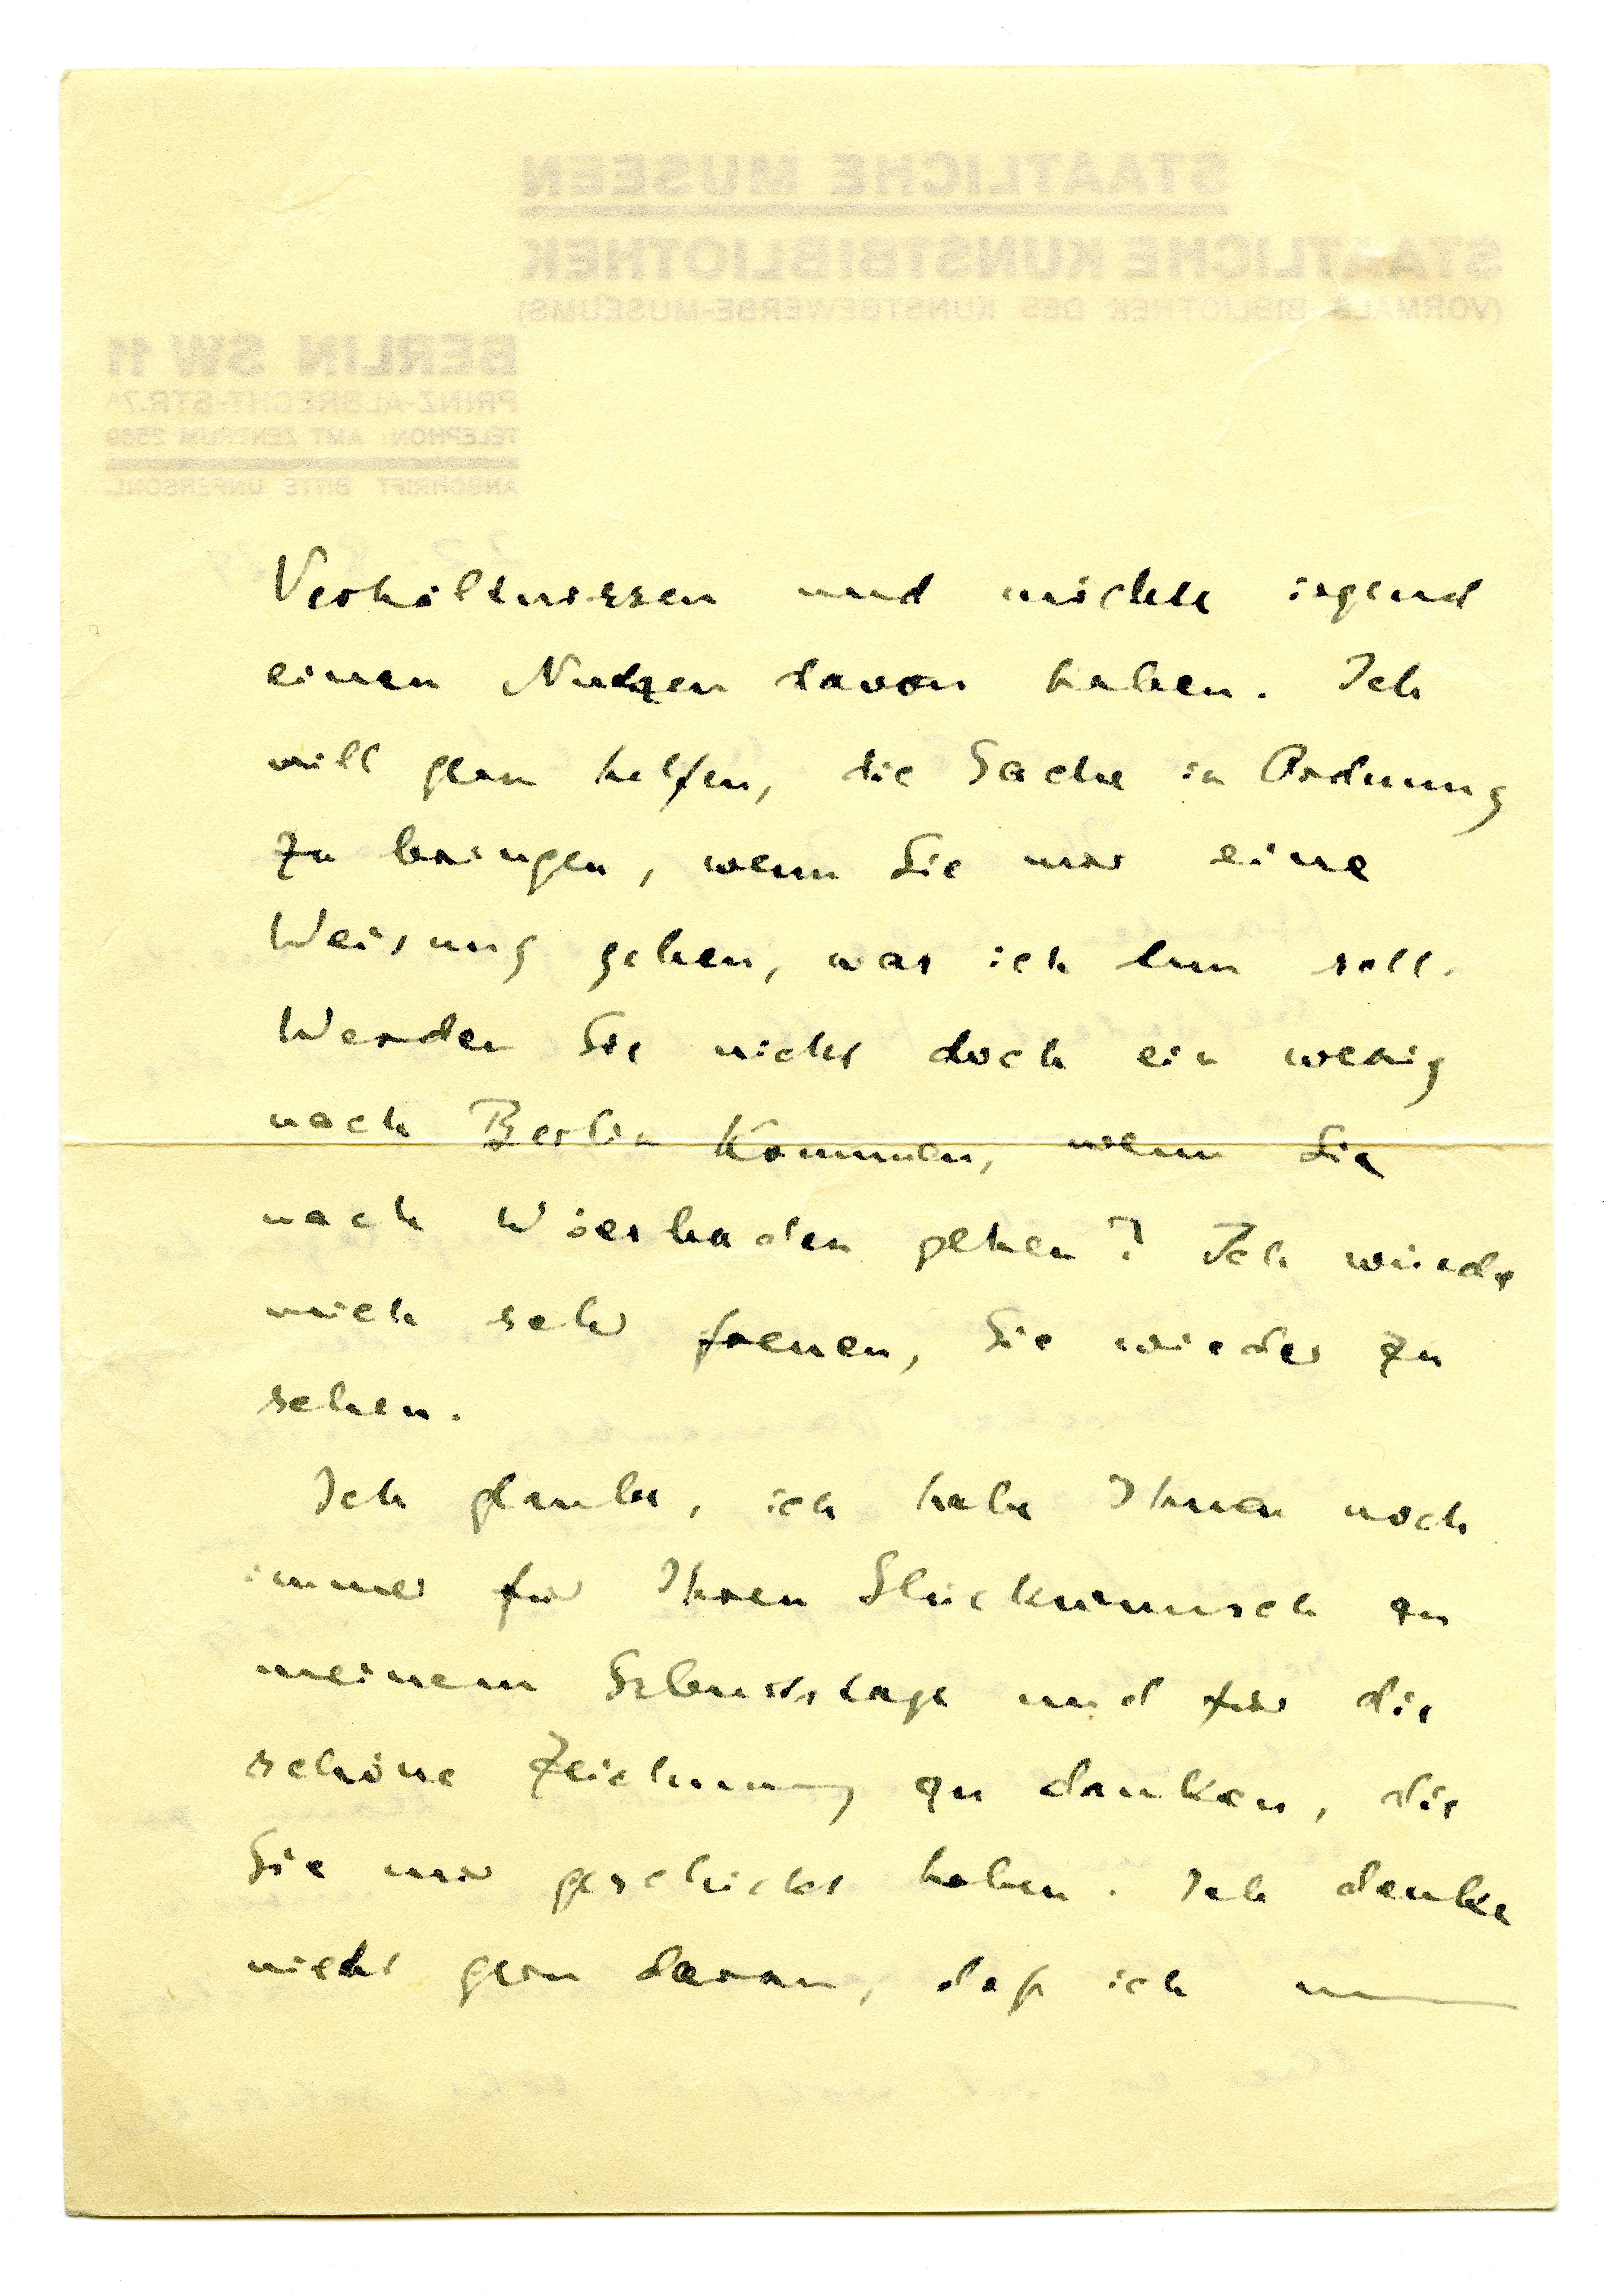 STAATLICHE MUSEEN
STAATLICHE KUNSTBIBLIOTHEK
(VORMALS BIBLIOTHEK DES KUNSTGEWERBE-MUSEUMS)
BERLIN SW 11
PRINZ-ALBRECHT-STR. 7A
TELEPHON: AMT ZENTRUM 2569
ANSCHRIFT BITTE UNPERSÖNL.
Verhältnissen und möchte irgend
einen Nutzen davon haben. Ich
will gern helfen, die Sache in Ordnung
zu bringen, wenn Sie mir eine
Weisung geben, was ich tun soll.
Werden Sie nicht doch ein wenig
nach Berlin kommen, wenn Sie
nach Wiesbaden gehen? Ich würde
mich sehr freuen, Sie wieder zu
sehen.
Ich glaube, ich habe Ihnen noch
immer für Ihren Glückwunsch zu
meinem Geburtstage und für die
schöne Zeichnung zu danken, die
Sie mir geschickt haben. Ich denke
nicht gern daran, daß ich nun